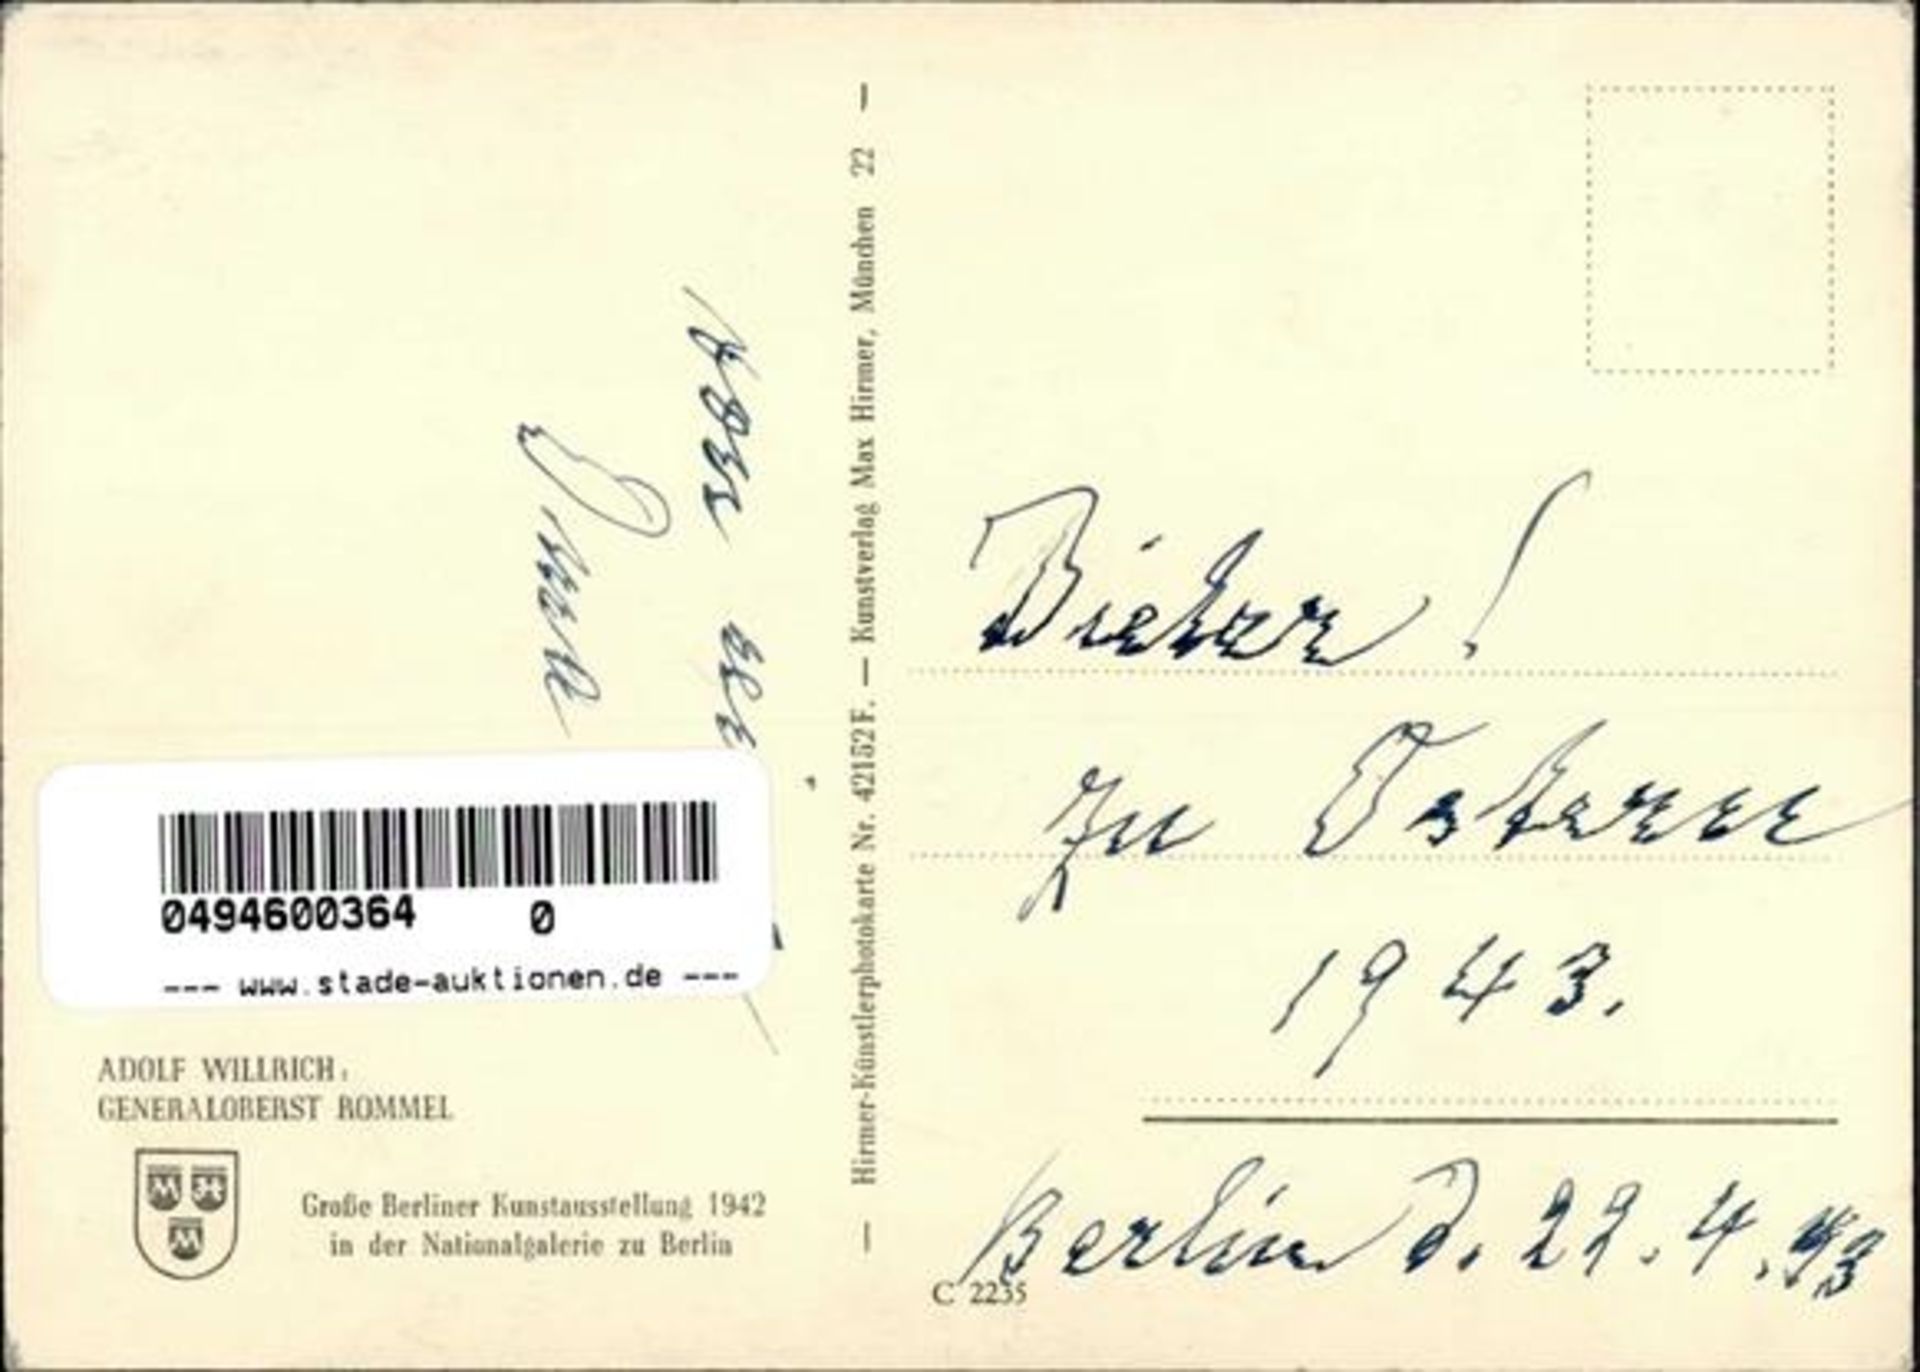 Dieter!
Zu Ostern
1943.
Berlin d. 22.4.43
Hirmer-Künstlerphotokarte Nr. 42152 F. — Kunstverlag Max Hirmer, München 22 —
0494600364 0
--- www.stade-auktionen.de ---
ADOLF WILLRICH:
GENERALOBERST ROMMEL
Große Berliner Kunstausstellung 1942
in der Nationalgalerie zu Berlin
C 2235